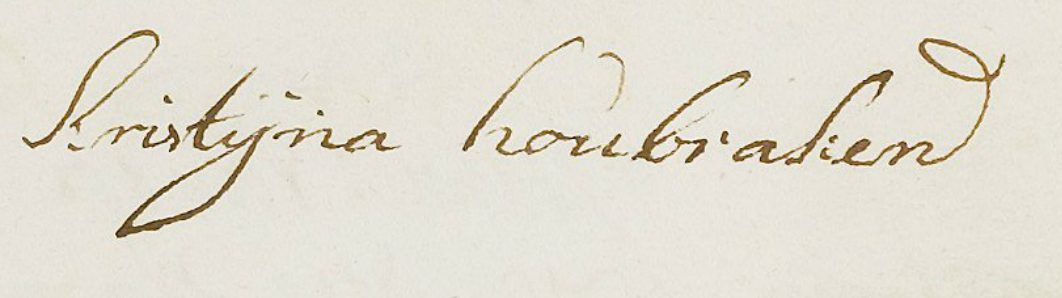 kristÿna houbraken